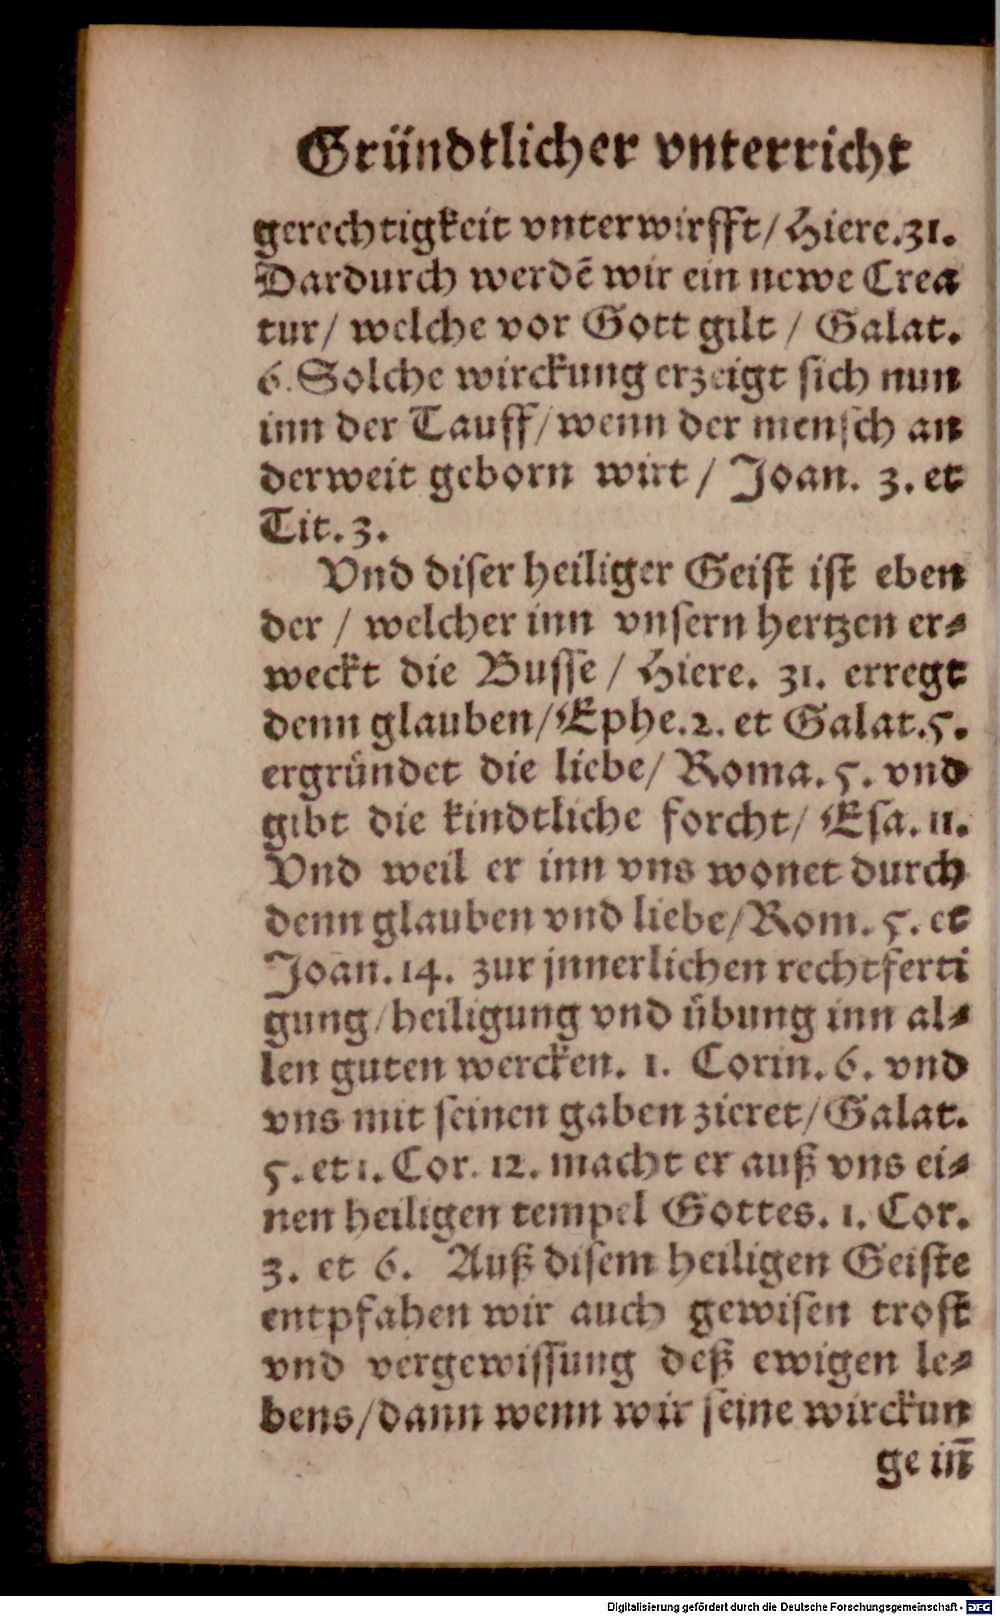 Gründtlicher vnterricht
gerechtigkeit vnterwirfft/ Hiere.31.
Dardurch werdē wir ein newe Crea
tur/ welche vor Gott gilt / Galat.
6. Solche wirckung erzeigt sich nun
inn der Tauff/ wenn der mensch an
derweit geborn wirt / Joan. 3. et
Tit. 3.
Vnd diser heiliger Geist ist eben
der / welcher inn vnsern hertzen er⸗
weckt die Busse / Hiere. 31. erregt
denn glauben/ Ephe.2. et Galat.5.
ergründet die liebe/ Roma. 5. vnd
gibt die kindtliche forcht/ Esa. 11.
Vnd weil er inn vns wonet durch
denn glauben vnd liebe/ Rom. 5. et
Joan. 14. zur jnnerlichen rechtferti
gung/ heiligung vnd übung inn al⸗
len guten wercken. 1. Corin. 6. vnd
vns mit seinen gaben zieret/ Galat.
5. et 1. Cor. 12. macht er auß vns ei⸗
nen heiligen tempel Gottes. 1. Cor.
3. et 6. Auß disem heiligen Geiste
entpfahen wir auch gewisen trost
vnd vergewissung deß ewigen le⸗
bens/ dann wenn wir seine wirckun
ge iñ
Digitalisierung gefördert durch die Deutsche Forschungsgemeinschaft - DFG